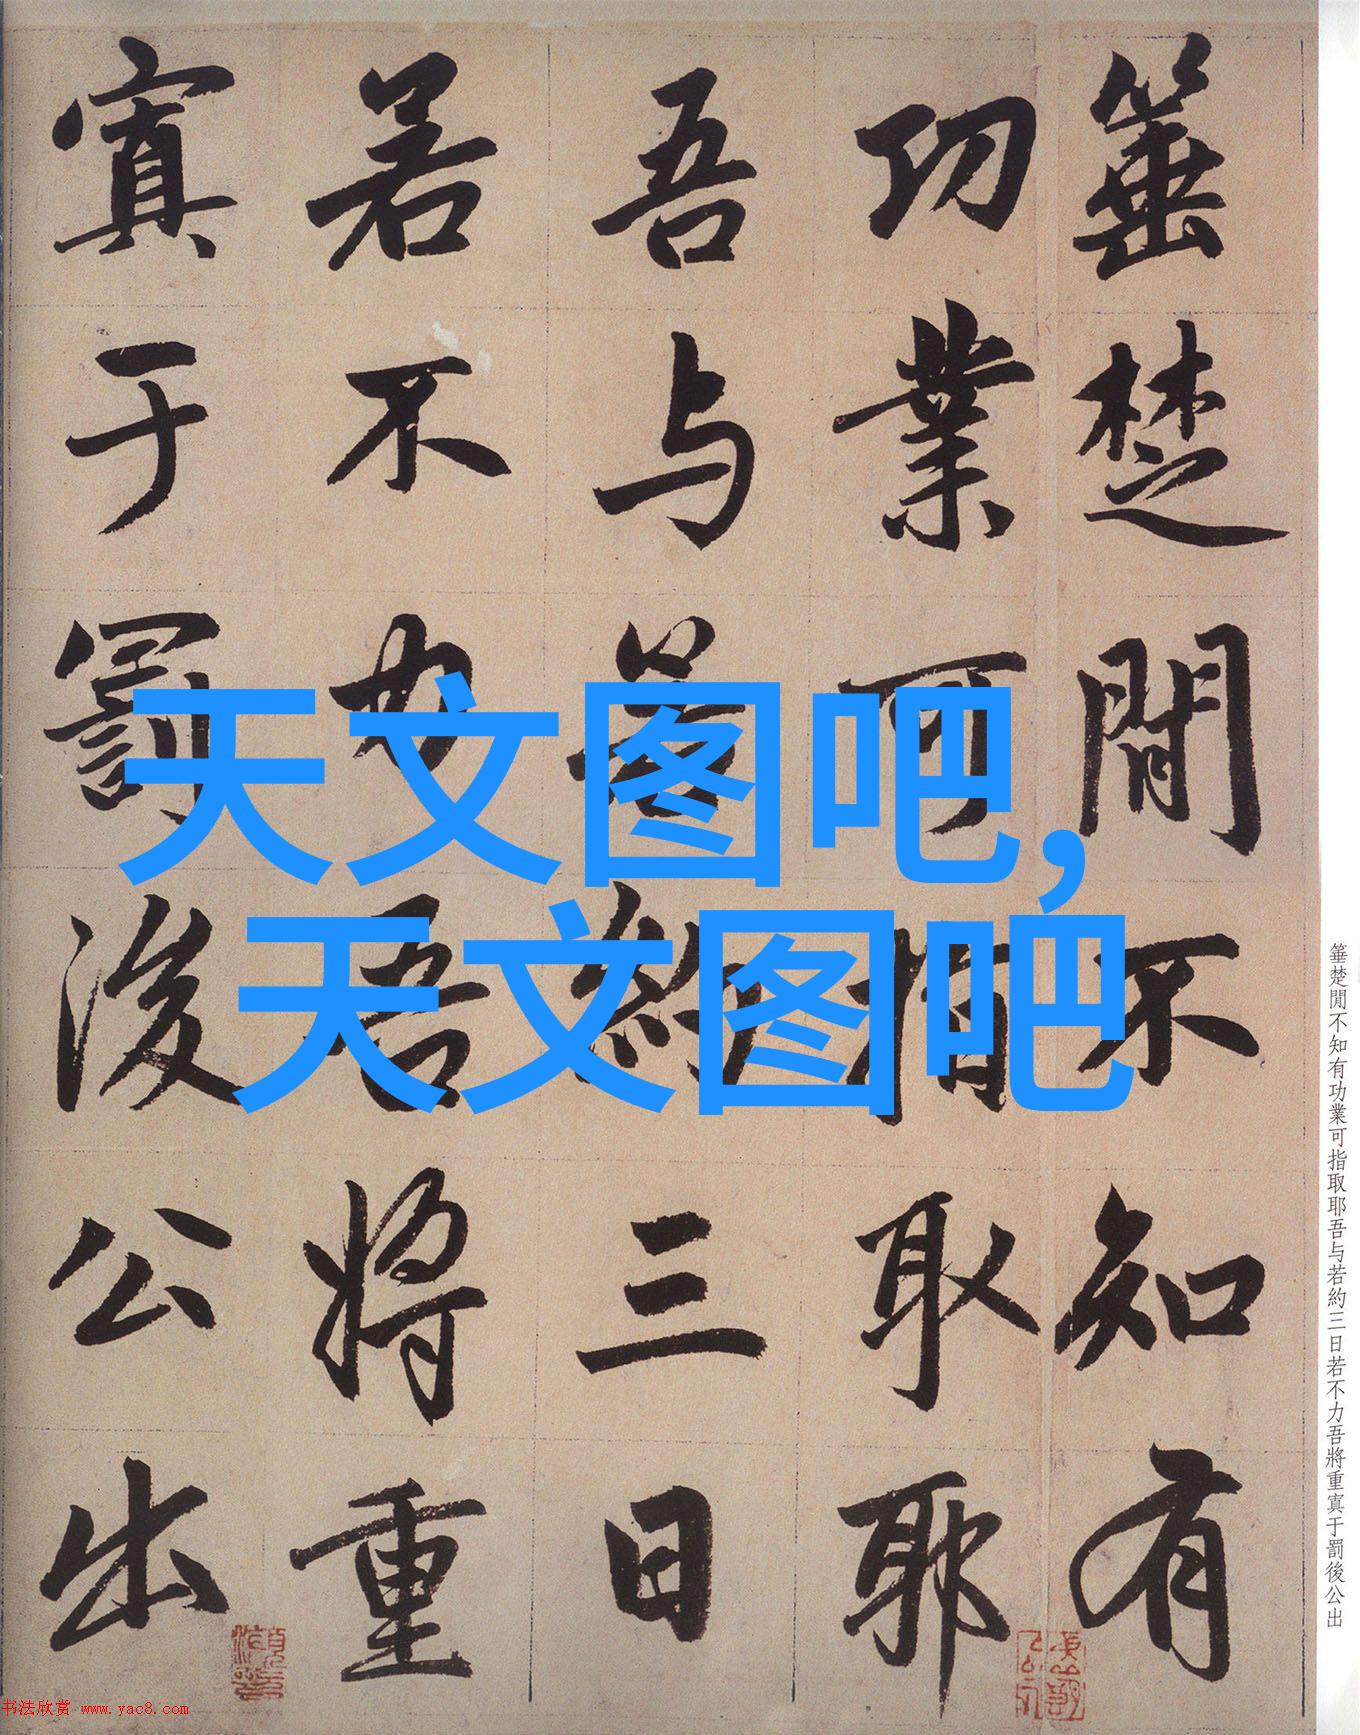 箠楚閒不知有
功業可指取耶
吾与若約三日
若不力吾將重
寘于罰後公出
天文图吧,
天文图吧
箠楚閒不知有功業可指取耶吾与若約三日若不力吾將重寘于罰後公出
书法欣赏 www.yac8.com